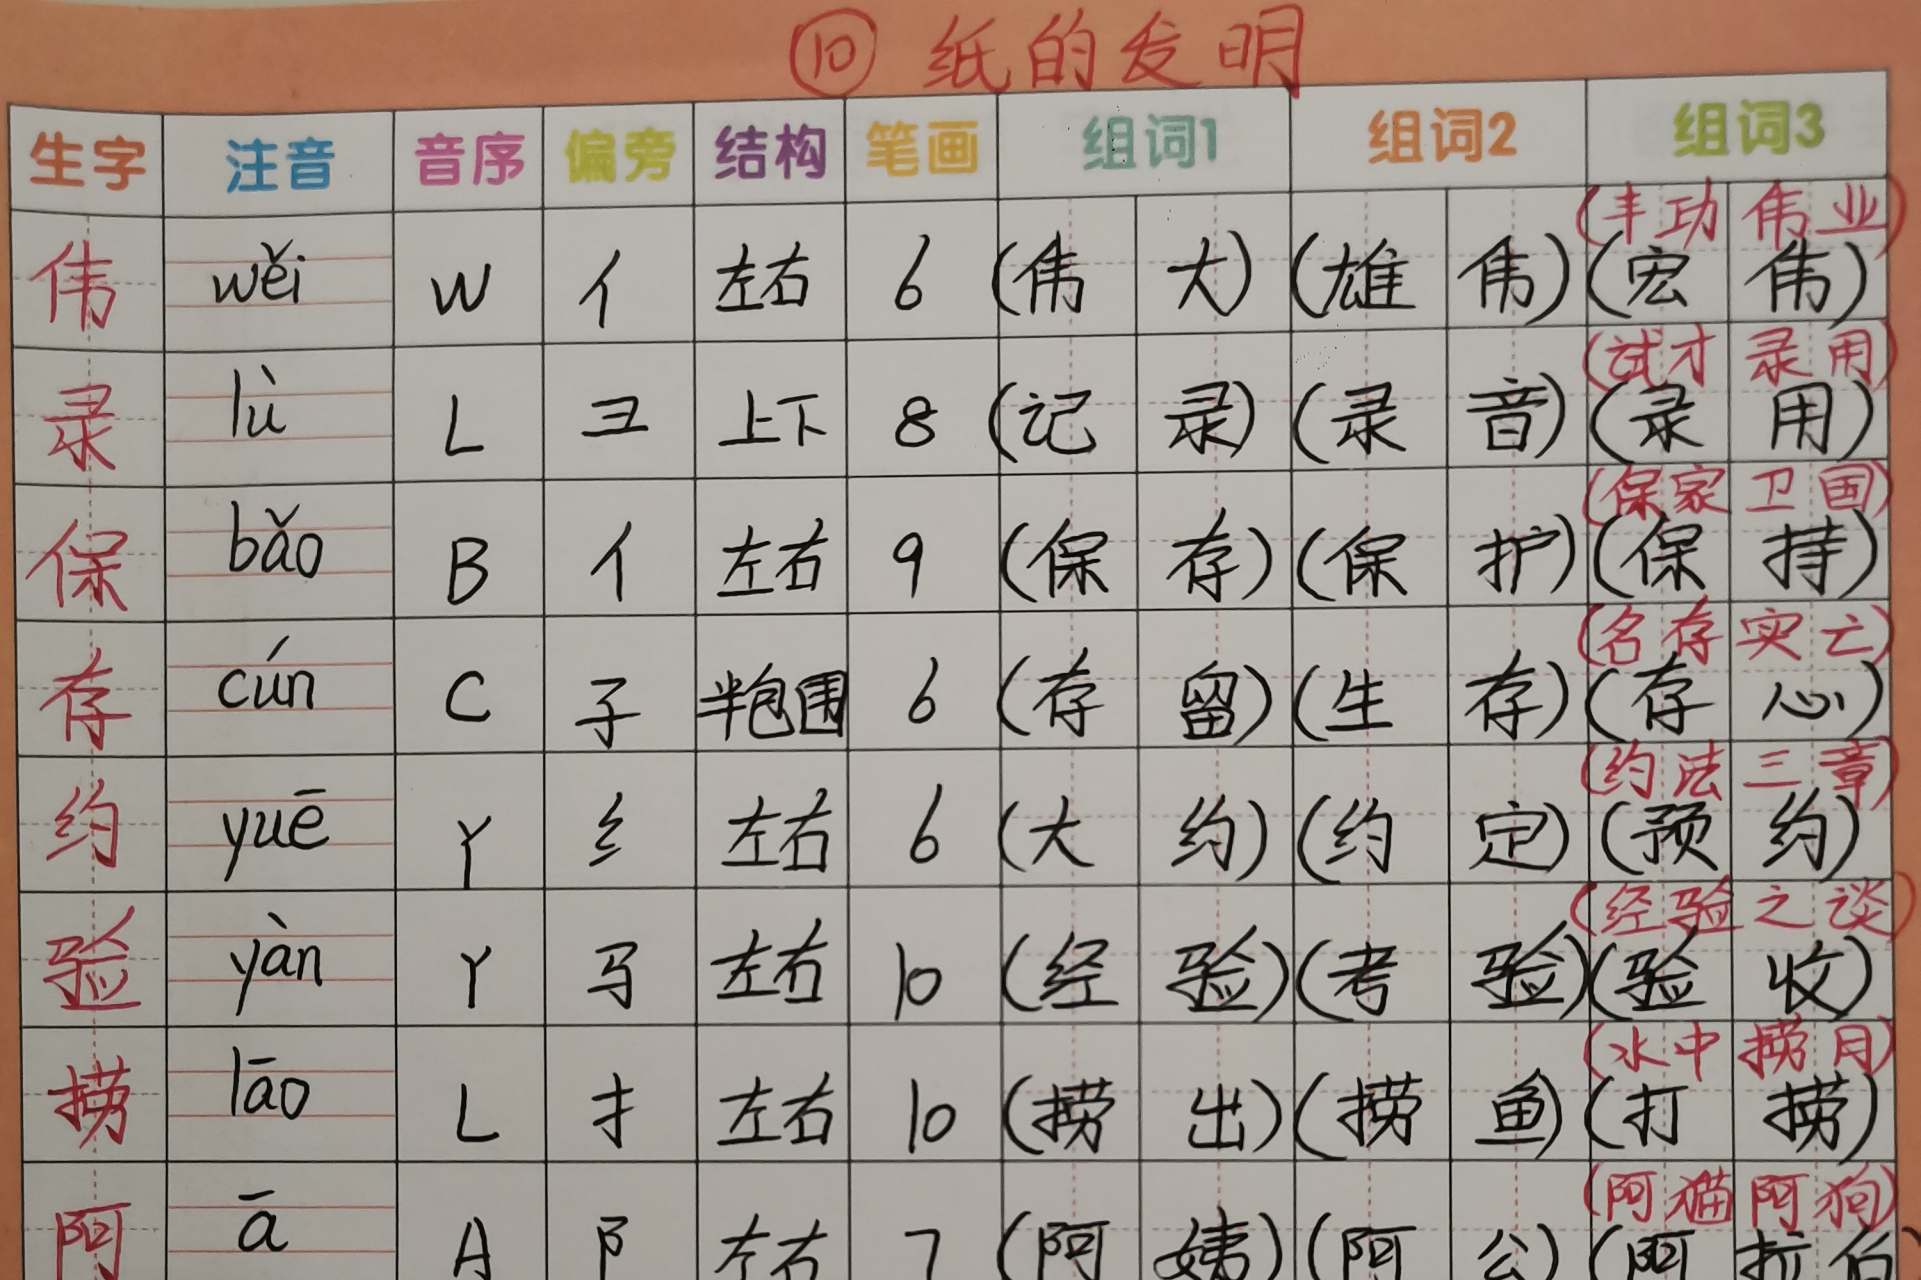 ⑩ 纸的发明
生字 注音 音序 偏旁 结构 笔画 组词1 组词2 组词3
(丰功伟业)
伟 wěi W 亻 左右 6 (伟大) (雄伟) (宏伟)
(试才录用)
录 lù L 彐 上下 8 (记录) (录音) (录用)
(保家卫国)
保 bǎo B 亻 左右 9 (保存) (保护) (保持)
(名存实亡)
存 cún C 子 半包围 6 (存留) (生存) (存心)
(约法三章)
约 yuē Y 纟 左右 6 (大约) (约定) (预约)
(经验之谈)
验 yàn Y 马 左右 10 (经验) (考验) (验收)
(水中捞月)
捞 lāo L 扌 左右 10 (捞出) (捞鱼) (打捞)
(阿猫阿狗)
阿 ā A 阝 左右 7 (阿姨) (阿公) (阿拉伯